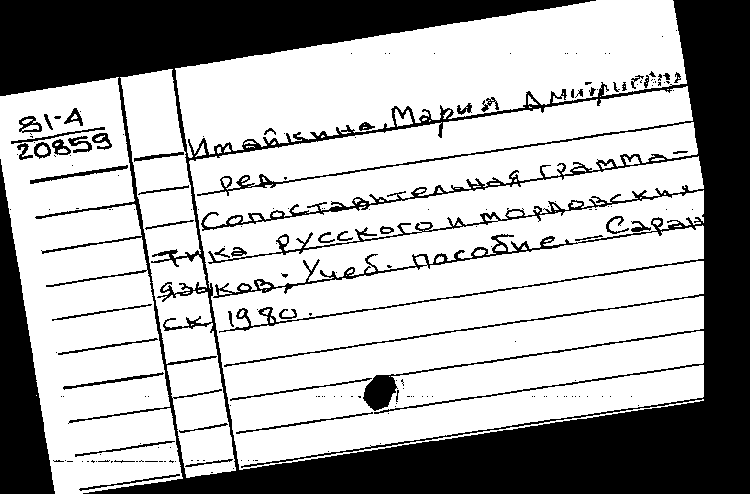 81-4
20859
Имайкина, Мария Дмитриевна
ред.
Сопоставительная грамма-
тика русского и мордовских
языков; Учеб. пособие. — Саран
ск, 1980.